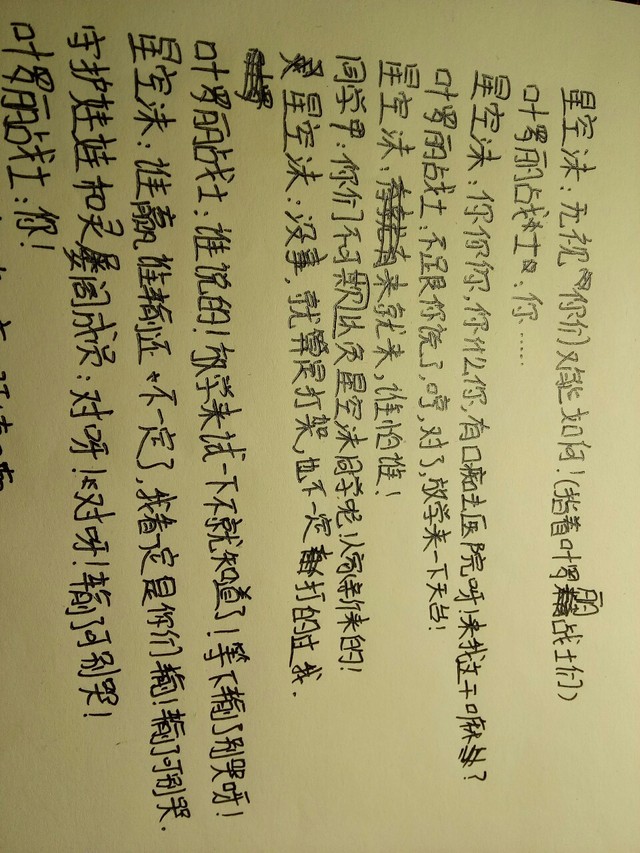 星空沫：无视你们又能如何！（指着叶罗丽战士们）
叶罗丽战士：你……
星空沫：你你你，你什么你，有口痴去医院呀！来我这干嘛？
叶罗丽战士：不跟你说了，哼，对了，放学来一下天台！
星空沫：来就来，谁怕谁！
同学甲：你们不可欺负星空沫同学呢！人家新来的！
星空沫：没事，就算是打架，也不一定打的过我.
叶罗丽战士：谁说的！放学来试一下不就知道了！等下输了别哭呀！
星空沫：谁赢谁输还不一定了，我看定是你们输！输了可别哭.
守护娃娃和灵阁成员：对呀！对呀！输了可别哭！
叶罗丽战士：你！